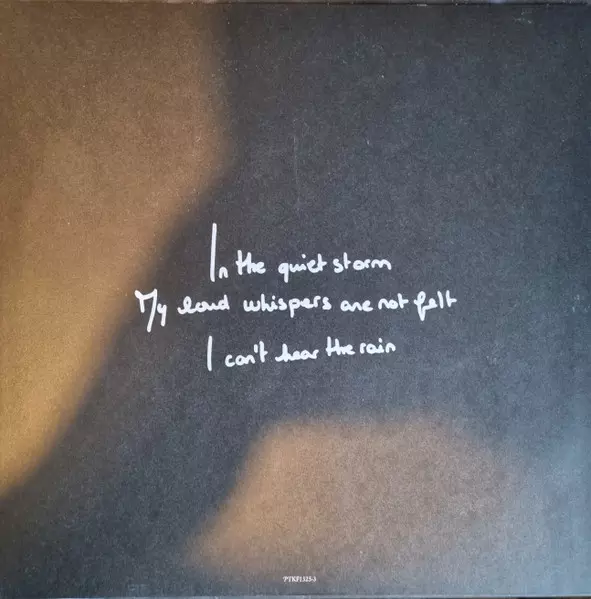 In the quiet storm
My loud whispers are not felt
I can't hear the rain
PTKF1325-3